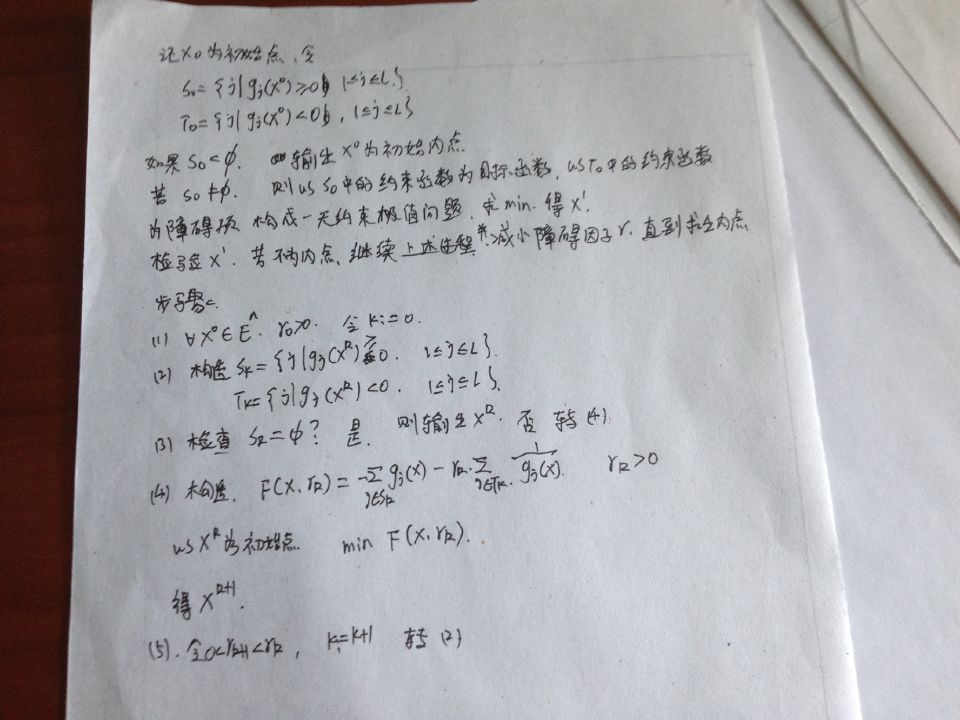 记X0为初始点,令
S0={j|gj(X⁰)≥0, 1≤j≤L.}
T0={j|gj(X⁰)<0, 1≤j≤L}
如果 S0=ф. 输出X⁰为初始内点.
若 S0≠ф. 则以S0中的约束函数为目标函数,以T0中的约束函数
为障碍项 构成一无约束极值问题,求min.得X'.
检验X'.若不为内点,继续上述过程并减小障碍因子r.直到求出内点
步骤:
(1) ∀X⁰∈Eⁿ. r0>0. 令k:=0.
(2) 构造Sk={j|gj(Xᵏ)≥0. 1≤j≤L}.
Tk={j|gj(Xᵏ)<0. 1≤j≤L}.
(3) 检查Sk=ф? 是. 则输出Xᵏ. 否 转(4).
(4) 构造. F(X,rk)=-∑j∈Sk gj(x)-rk.∑j∈Tk. 1/gj(x). rk>0
以Xᵏ为初始点. min F(X,rk).
得Xᵏ⁺¹.
(5).令0<rk+1<rk, k:=k+1 转(2)